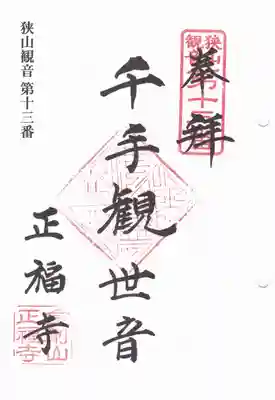 奉拜
千手観世音
正福寺
狭山観音 第十三番
狭山
観音
第十三
正福寺